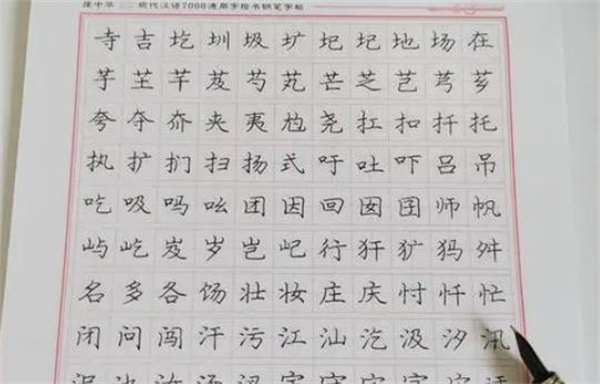 庞中华 现代汉语7000通用字楷书钢笔字帖
寺吉圪圳圾圹圮圯地场在
芋芏芊芨芍芄芒芝芑芎芗
夸夺夼夹夷尥尧扛扣扦托
执扩扪扫扬式吁吐吓吕吊
吃吸吗吆团因回囡囝师帆
屿屹岌岁岂屺行犴犷犸舛
名多各饧壮妆庄庆忖忏忙
闭问闯汗污江汕汔汲汐汛